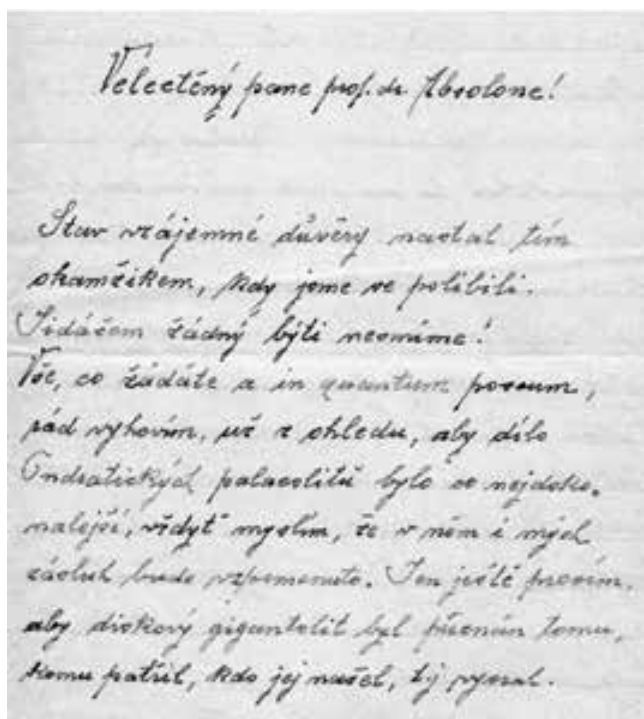 Velectěný pane prof. dr. Absolone!
Stav vzájemné důvěry nastal tím
okamžikem, kdy jsme se políbili.
Jidášem žádný býti nesmíme!
Vše, co žádáte a in quantum possum,
rád vyhovím, už z ohledu, aby dílo
Ondratických palaeolitů bylo co nejdoko-
nalejší, vždyť myslím, že v něm i mých
zásluh bude vzpomenuto. Jen ještě prosím,
aby diskový gigantolit byl přiznán tomu,
komu patřil, kdo jej našel, tj vyoral.